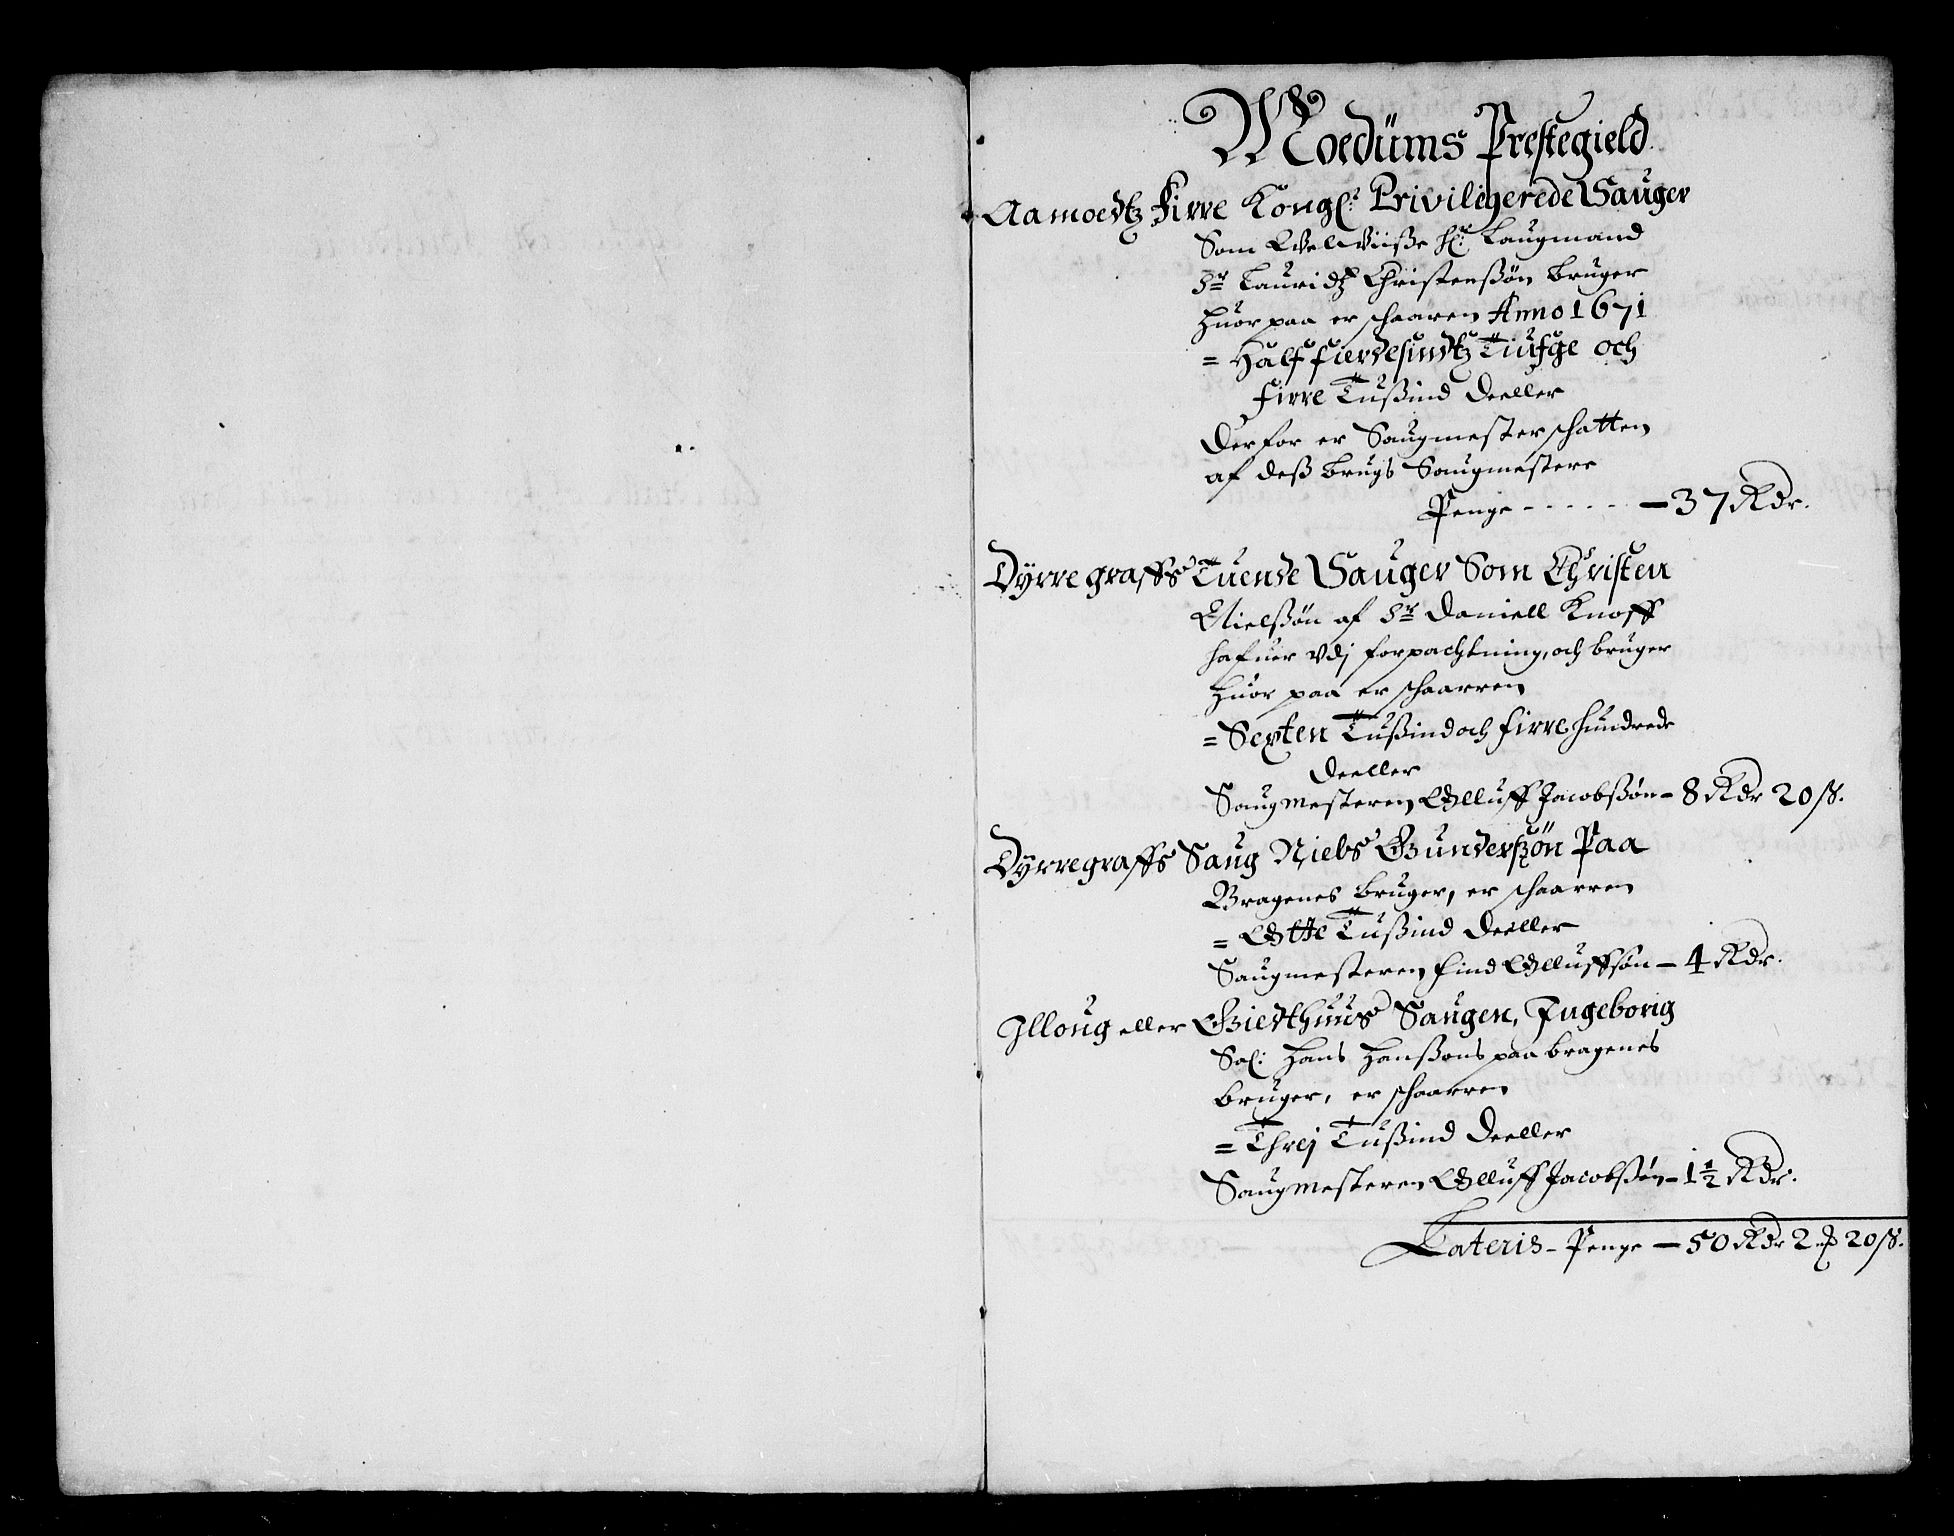 Moedüms Prestegield
Aamoedtz Firre Kongl: Priviligerede Sauger
Som Welviisse Hr: Laugmand
Sr Lauridtz Christenssøn bruger
huor paa er schaaren Anno 1671
= Half fierdesindtz Tiufge och
firre Tussind deeller
Derfor er Saugmester schatten
af dess brugs Saugmestere
Penge - - - - - - 37 Rdr.
Dyrregraffs Tuende Sauger Som Christen
Nielssøn af Sr Daniell Knoff
hafuer Vdj forpachtning, och bruger
huor paa er schaarren
= Sexten Tussind och firre hundrede
deeller
Saugmesteren Olluff Jacobssøn - 8 Rdr 20 ß.
Dyrregraffs Saug Niels Gunderszøn Paa
Bragenes bruger, er schaarren
= Otte Tussind deeller
Saugmesteren find Olluffsøn - 4 Rdr.
Illoug eller Giedthuus Saugen, Ingeborig
Sal: Hans Hanssøns paa bragenes
bruger, er schaarren
= Threj Tussind deeller
Saugmesteren Olluff Jacobssøn - 1½ Rdr.
Lateris - Penge - 50 Rdr 2 ℳ 20 ß.